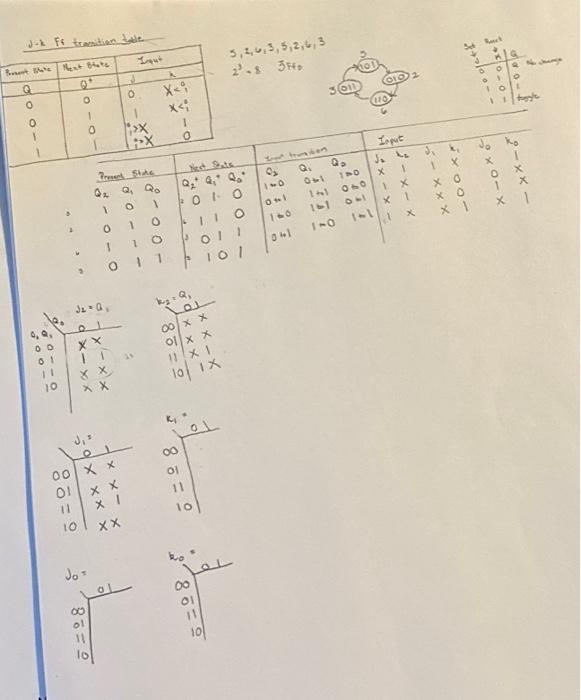 J-K FF transition table
Present State | Next State | Input
Q | Q⁺ | J K
0 0 0 X<0,1
0 1 1 X<0,1
1 0 X 1
1 1 X 0
5,2,6,3,5,2,6,3
2³=8 3FFs
5
101
010 2
3 011
110
6
Set Reset
J K Q
0 0 Q No change
0 1 0
1 0 1
1 1 toggle
Present State | Next State | Input transition | Input
Q₂ Q₁ Q₀ | Q₂⁺ Q₁⁺ Q₀⁺ | Q₂ Q₁ Q₀ | J₂ K₂ J₁ K₁ J₀ K₀
5 1 0 1 | 2 0 1 0 | 1→0 0→1 1→0 | X 1 1 X X 1
2 0 1 0 | 6 1 1 0 | 0→1 1→1 0→0 | 1 X X 0 0 X
6 1 1 0 | 3 0 1 1 | 1→0 1→1 0→1 | X 1 X 0 1 X
3 0 1 1 | 5 1 0 1 | 0→1 1→0 1→1 | 1 X X 1 X 1
J₂=Q₁
Q₀
Q₂Q₁ 0 1
00 X X
01 1 1
11 X X
10 X X
K₂=Q₁
0 1
00 X X
01 X X
11 X 1
10 1 X
J₁=
0 1
00 X X
01 X X
11 X 1
10 X X
K₁=
0 1
00
01
11
10
J₀=
0 1
00
01
11
10
K₀=
0 1
00
01
11
10